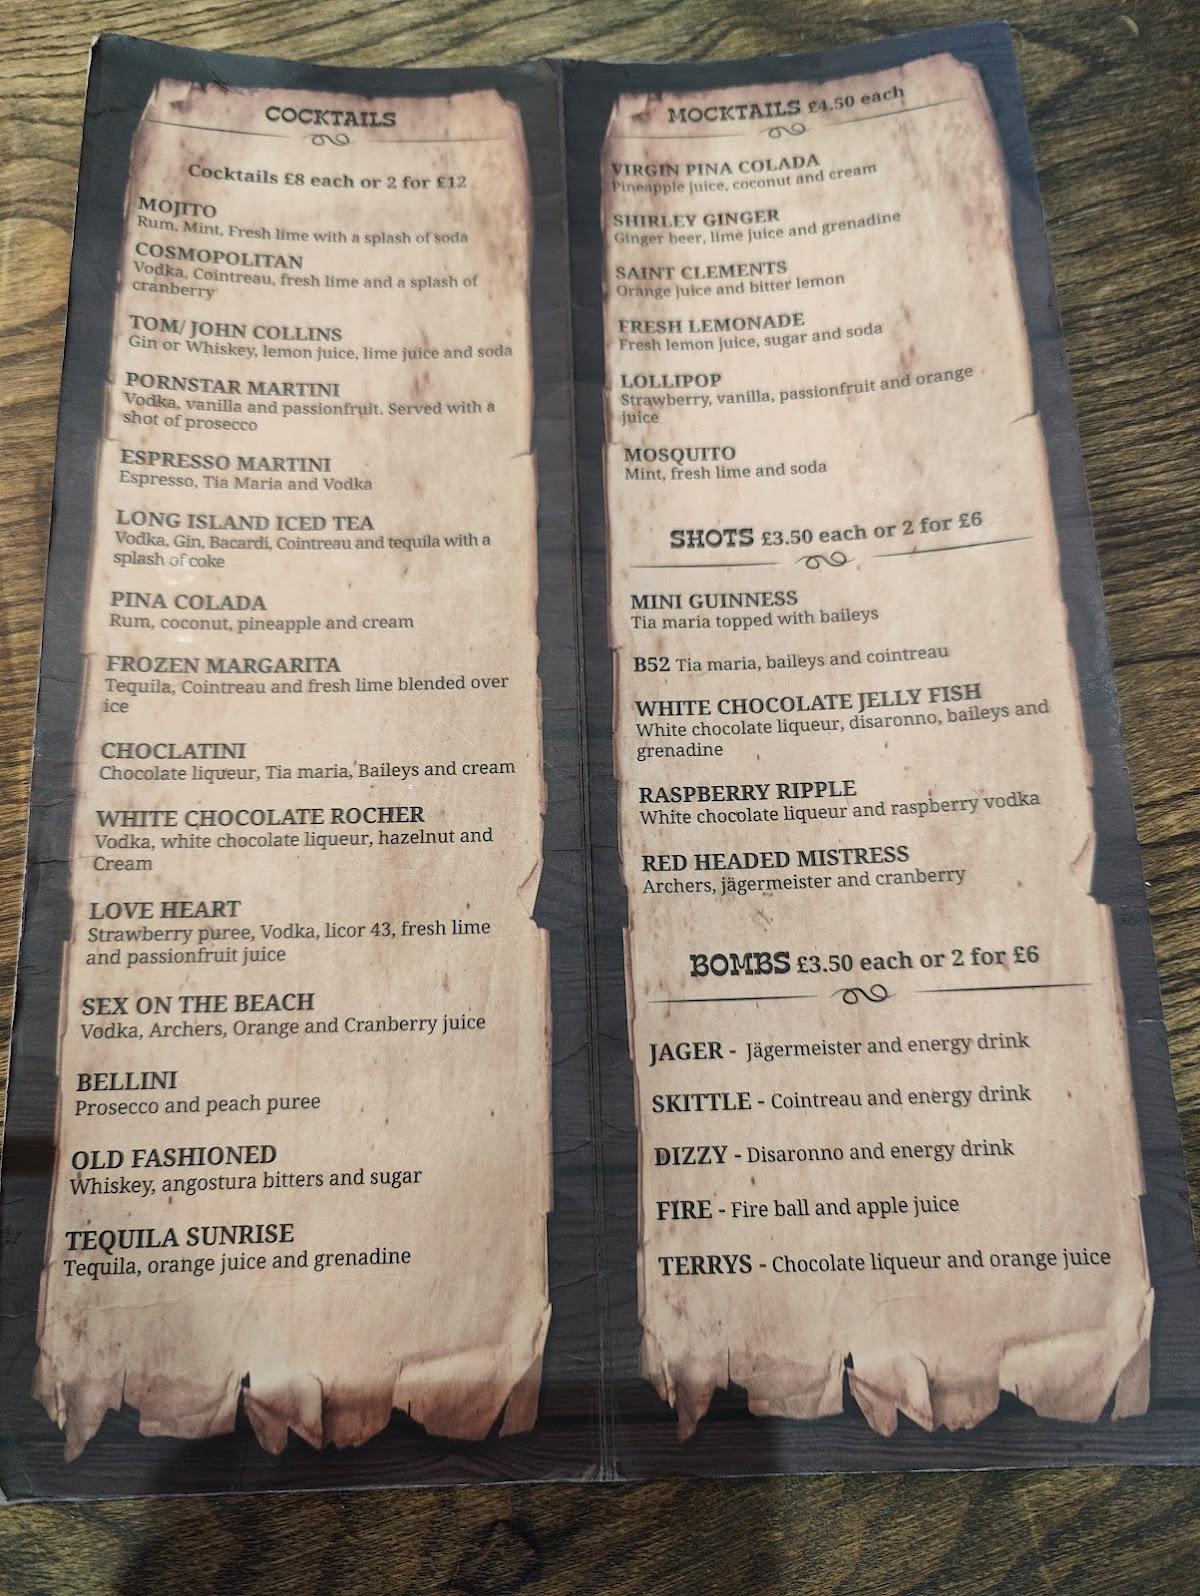 COCKTAILS
Cocktails £8 each or 2 for £12
MOJITO
Rum, Mint, Fresh lime with a splash of soda
COSMOPOLITAN
Vodka, Cointreau, fresh lime and a splash of
cranberry
TOM/ JOHN COLLINS
Gin or Whiskey, lemon juice, lime juice and soda
PORNSTAR MARTINI
Vodka, vanilla and passionfruit. Served with a
shot of prosecco
ESPRESSO MARTINI
Espresso, Tia Maria and Vodka
LONG ISLAND ICED TEA
Vodka, Gin, Bacardi, Cointreau and tequila with a
splash of coke
PINA COLADA
Rum, coconut, pineapple and cream
FROZEN MARGARITA
Tequila, Cointreau and fresh lime blended over
ice
CHOCLATINI
Chocolate liqueur, Tia maria, Baileys and cream
WHITE CHOCOLATE ROCHER
Vodka, white chocolate liqueur, hazelnut and
Cream
LOVE HEART
Strawberry puree, Vodka, licor 43, fresh lime
and passionfruit juice
SEX ON THE BEACH
Vodka, Archers, Orange and Cranberry juice
BELLINI
Prosecco and peach puree
OLD FASHIONED
Whiskey, angostura bitters and sugar
TEQUILA SUNRISE
Tequila, orange juice and grenadine
MOCKTAILS £4.50 each
VIRGIN PINA COLADA
Pineapple juice, coconut and cream
SHIRLEY GINGER
Ginger beer, lime juice and grenadine
SAINT CLEMENTS
Orange juice and bitter lemon
FRESH LEMONADE
Fresh lemon juice, sugar and soda
LOLLIPOP
Strawberry, vanilla, passionfruit and orange
juice
MOSQUITO
Mint, fresh lime and soda
SHOTS £3.50 each or 2 for £6
MINI GUINNESS
Tia maria topped with baileys
B52 Tia maria, baileys and cointreau
WHITE CHOCOLATE JELLY FISH
White chocolate liqueur, disaronno, baileys and
grenadine
RASPBERRY RIPPLE
White chocolate liqueur and raspberry vodka
RED HEADED MISTRESS
Archers, jägermeister and cranberry
BOMBS £3.50 each or 2 for £6
JAGER - Jägermeister and energy drink
SKITTLE - Cointreau and energy drink
DIZZY - Disaronno and energy drink
FIRE - Fire ball and apple juice
TERRYS - Chocolate liqueur and orange juice